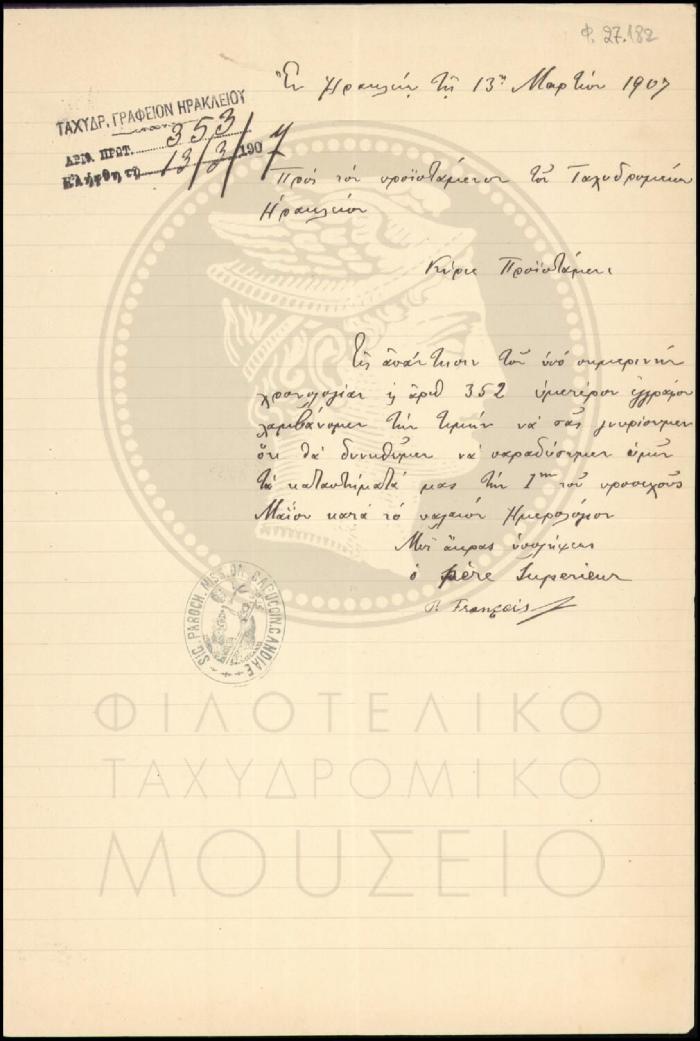 Φ. 27.182
Ἐν Ἡρακλείῳ τῇ 13ῃ Μαρτίου 1907
ΤΑΧΥΔΡ. ΓΡΑΦΕΙΟΝ ΗΡΑΚΛΕΙΟΥ
ΑΡΙΘ. ΠΡΩΤ. 353
Ἐλήφθη τῇ 13/3/1907
Πρὸς τὸν προϊστάμενον τοῦ Ταχυδρομείου
Ἡρακλείου
Κύριε Προϊστάμενε
Εἰς ἀπάντησιν τοῦ ὑπὸ σημερινὴν
χρονολογίαν ἀριθ 352 ὑμετέρου ἐγγράφου
λαμβάνομεν τὴν τιμὴν νὰ σᾶς γνωρίσωμεν
ὅτι θὰ δυνηθῶμεν νὰ παραδώσωμεν ὑμῖν
τὰ καταστήματά μας τὴν 1ην τοῦ προσεχοῦς
Μαΐου κατὰ τὸ παλαιὸν Ἡμερολόγιον
Μετ' ἄκρας ὑπολήψεως
ὁ père Supérieur
P. François
SIG. PAROCH. MISS. OR. CAPUCCIN. CANDIAE
ΦΙΛΟΤΕΛΙΚΟ
ΤΑΧΥΔΡΟΜΙΚΟ
ΜΟΥΣΕΙΟ